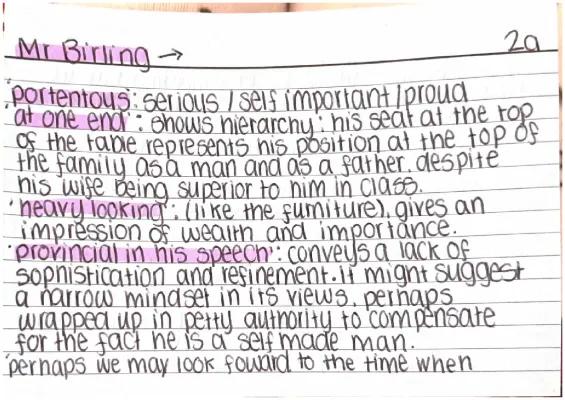 Mr Birling → 2a
'portentous': serious / self important / proud
'at one end': shows hierarchy: his seat at the top
of the table represents his position at the top of
the family as a man and as a father, despite
his wife being superior to him in class.
'heavy looking': (like the furniture), gives an
impression of wealth and importance.
'provincial in his speech': conveys a lack of
sophistication and refinement. it might suggest
a narrow mindset in its views, perhaps
wrapped up in petty authority to compensate
for the fact he is a self made man.
'perhaps we may look foward to the time when